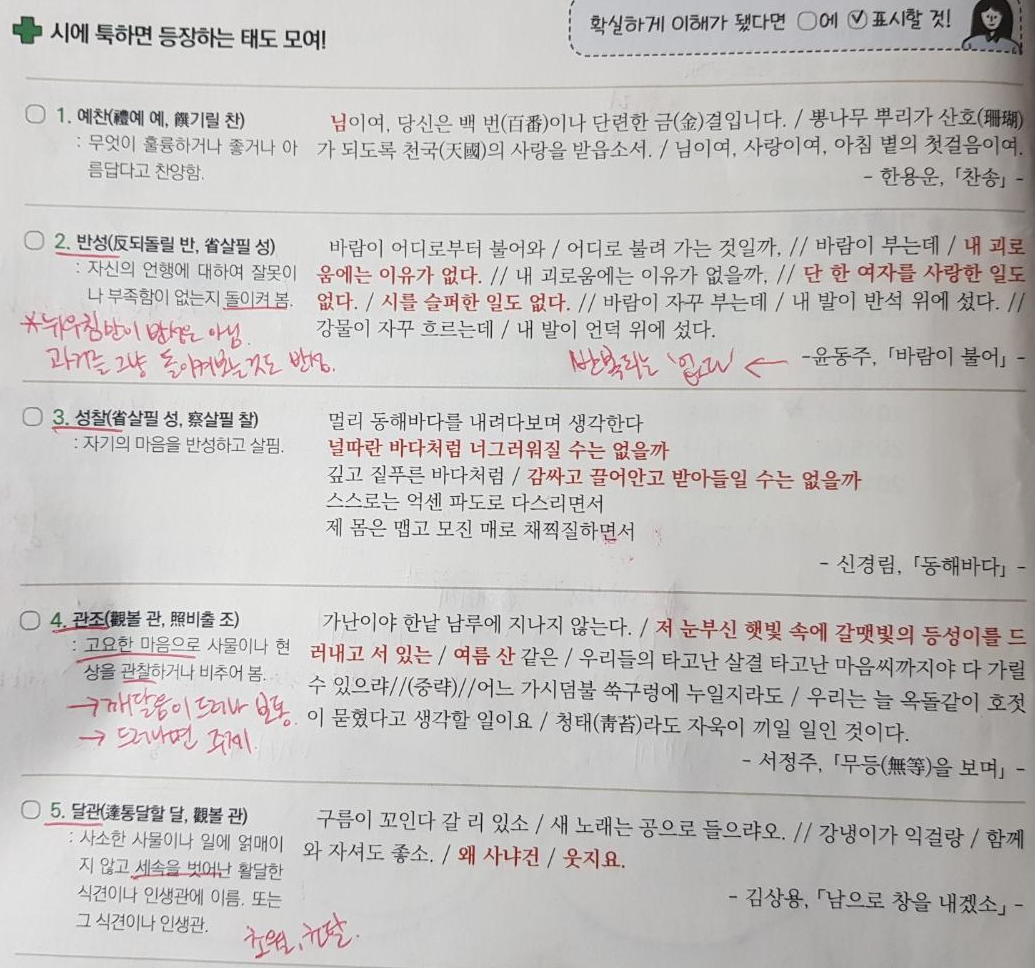 시에 툭하면 등장하는 태도 모여!
확실하게 이해가 됐다면 ○에 ✓ 표시할 것!
1. 예찬(禮예 예, 饌기릴 찬)
: 무엇이 훌륭하거나 좋거나 아
름답다고 찬양함.
님이여, 당신은 백 번(百番)이나 단련한 금(金)결입니다. / 뽕나무 뿌리가 산호(珊瑚)
가 되도록 천국(天國)의 사랑을 받읍소서. / 님이여, 사랑이여, 아침 볕의 첫걸음이여.
- 한용운, 「찬송」 -
2. 반성(反되돌릴 반, 省살필 성)
: 자신의 언행에 대하여 잘못이
나 부족함이 없는지 돌이켜 봄.
※뉘우침만이 반성은 아님.
과거를 그냥 돌이켜보는것도 반성.
바람이 어디로부터 불어와 / 어디로 불려 가는 것일까, // 바람이 부는데 / 내 괴로
움에는 이유가 없다. // 내 괴로움에는 이유가 없을까, // 단 한 여자를 사랑한 일도
없다. / 시를 슬퍼한 일도 없다. // 바람이 자꾸 부는데 / 내 발이 반석 위에 섰다. //
강물이 자꾸 흐르는데 / 내 발이 언덕 위에 섰다.
반복되는 '없다' ←
-윤동주, 「바람이 불어」 -
3. 성찰(省살필 성, 察살필 찰)
: 자기의 마음을 반성하고 살핌.
멀리 동해바다를 내려다보며 생각한다
널따란 바다처럼 너그러워질 수는 없을까
깊고 짙푸른 바다처럼 / 감싸고 끌어안고 받아들일 수는 없을까
스스로는 억센 파도로 다스리면서
제 몸은 맵고 모진 매로 채찍질하면서
- 신경림, 「동해바다」 -
4. 관조(觀볼 관, 照비출 조)
: 고요한 마음으로 사물이나 현
상을 관찰하거나 비추어 봄.
→ 깨달음이 드러나 보통.
→ 드러나면 주제.
가난이야 한낱 남루에 지나지 않는다. / 저 눈부신 햇빛 속에 갈맷빛의 등성이를 드
러내고 서 있는 / 여름 산 같은 / 우리들의 타고난 살결 타고난 마음씨까지야 다 가릴
수 있으랴//(중략)//어느 가시덤불 쑥구렁에 누일지라도 / 우리는 늘 옥돌같이 호젓
이 묻혔다고 생각할 일이요 / 청태(靑苔)라도 자욱이 끼일 일인 것이다.
- 서정주, 「무등(無等)을 보며」 -
5. 달관(達통달할 달, 觀볼 관)
: 사소한 사물이나 일에 얽매이
지 않고 세속을 벗어난 활달한
식견이나 인생관에 이름. 또는
그 식견이나 인생관.
초월, 천달.
구름이 꼬인다 갈 리 있소 / 새 노래는 공으로 들으랴오. // 강냉이가 익걸랑 / 함께
와 자셔도 좋소. / 왜 사냐건 / 웃지요.
- 김상용, 「남으로 창을 내겠소」 -